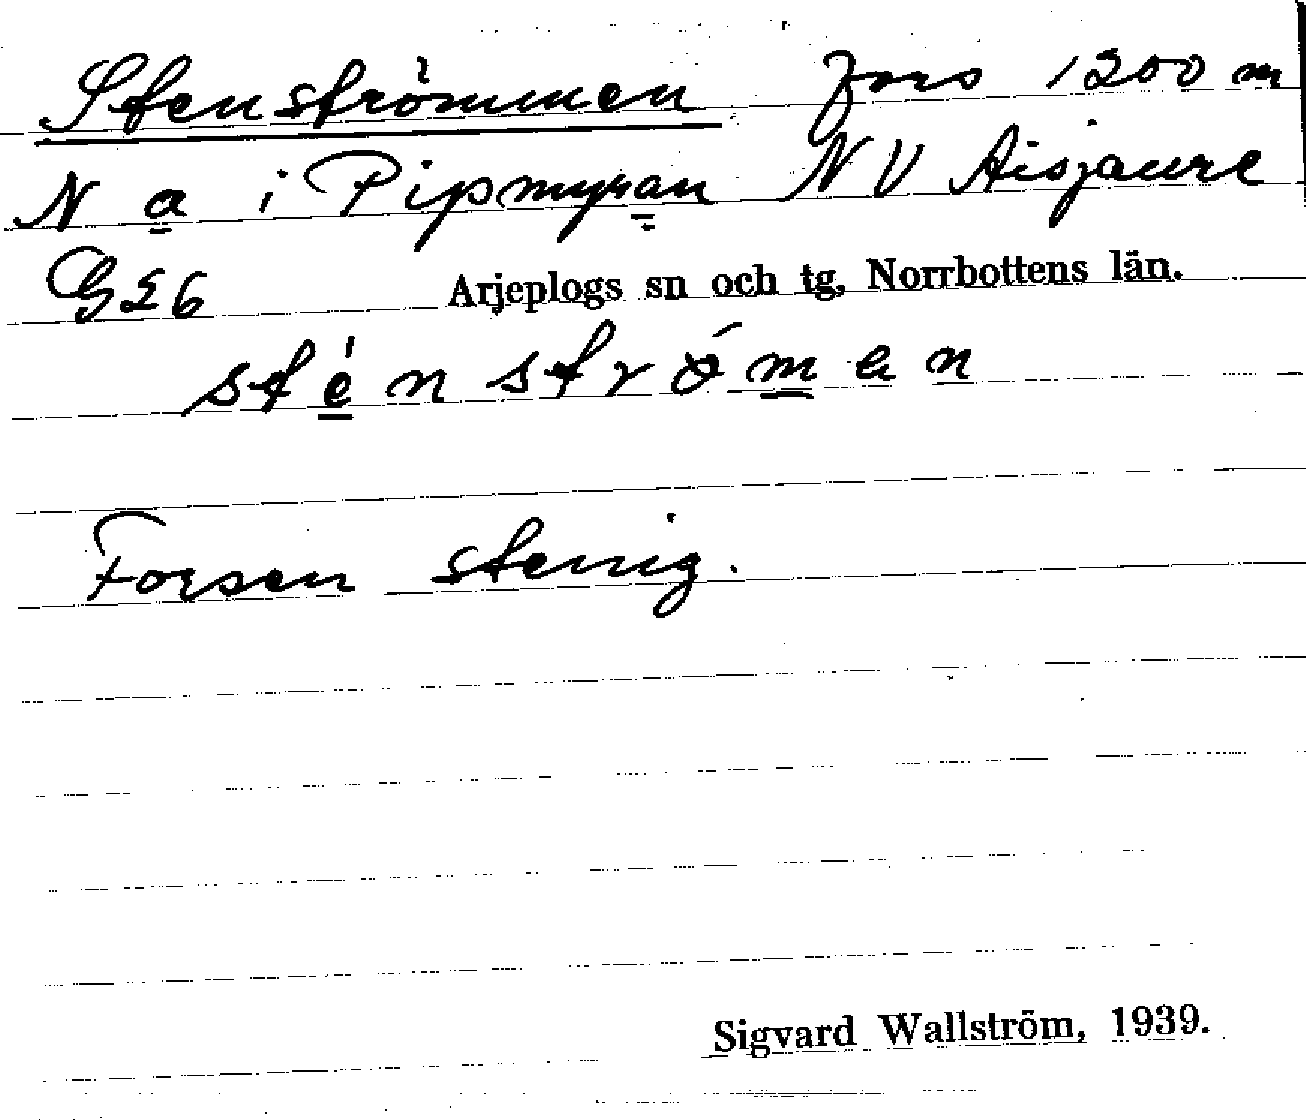 Stenströmmen fors 1200 m
N a i Pipmyran NV Aisjaure
G26 Arjeplogs sn och tg, Norrbottens län.
sténströmen
Forsen stenig.
Sigvard Wallström, 1939.